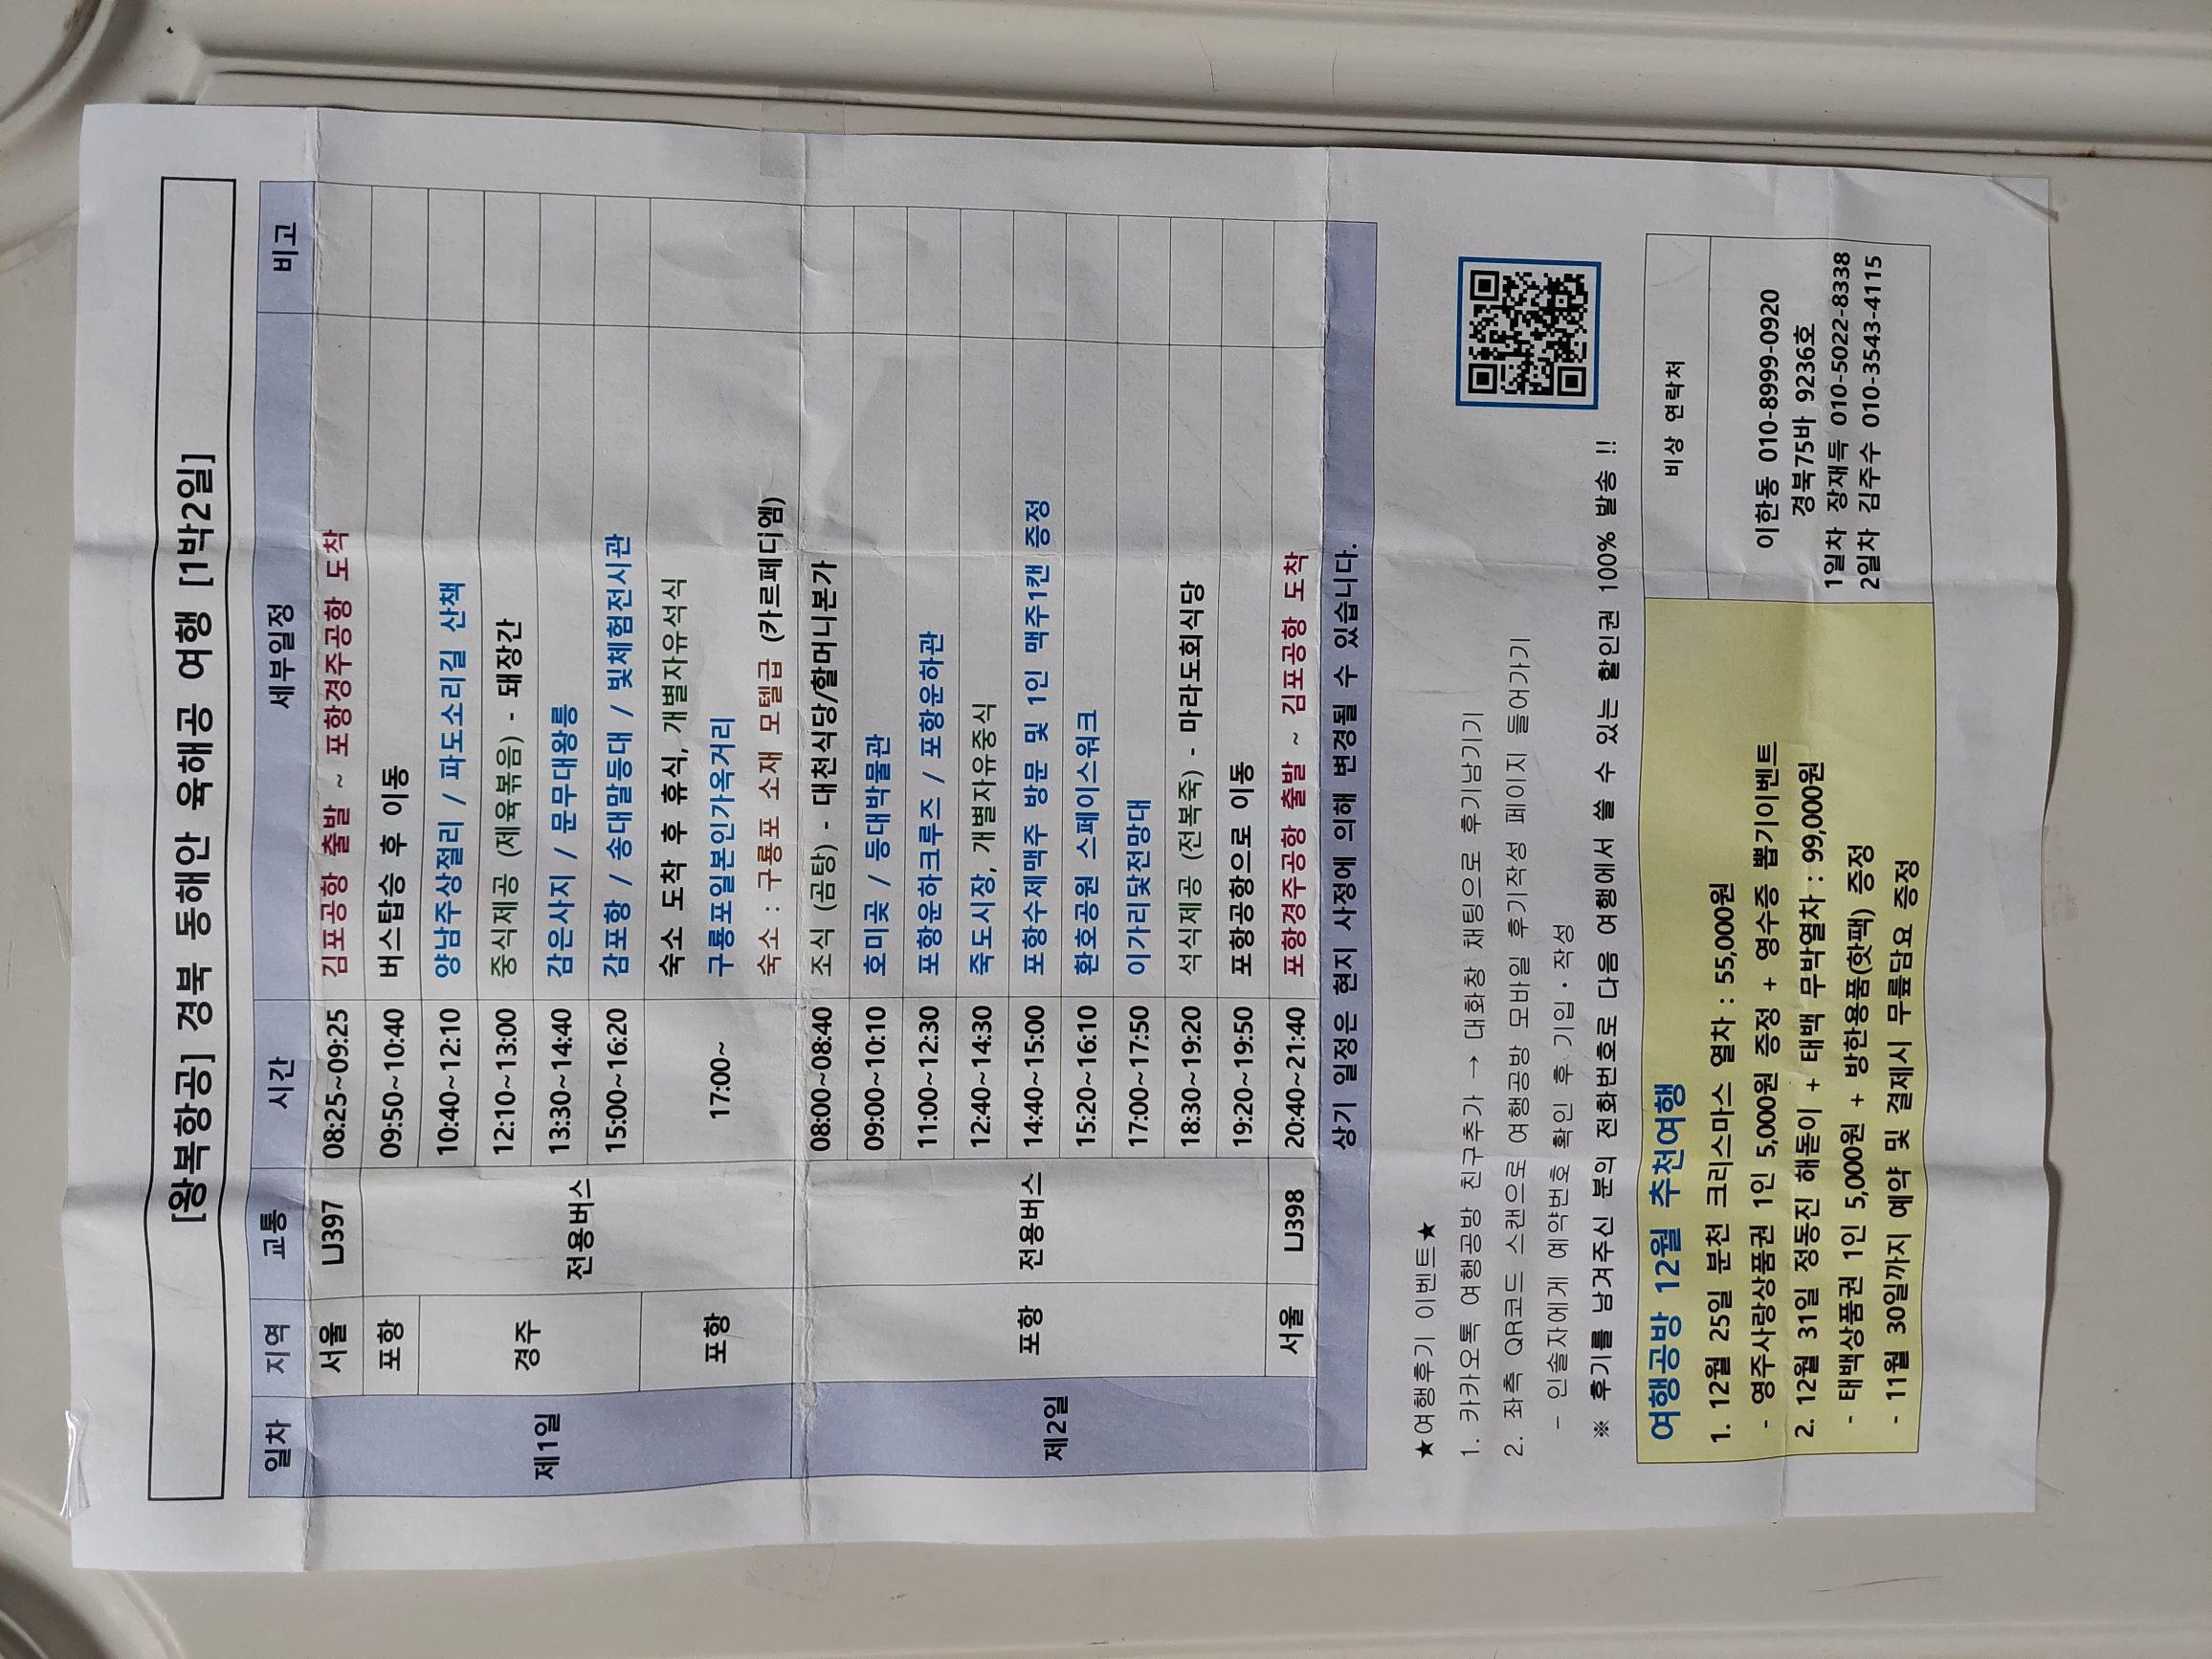 [왕복항공] 경북 동해안 육해공 여행 [1박2일]
일차 지역 교통 시간 세부일정 비고
제1일 서울 LJ397 08:25~09:25 김포공항 출발 ~ 포항경주공항 도착
포항 전용버스 09:50~10:40 버스탑승 후 이동
경주 10:40~12:10 양남주상절리 / 파도소리길 산책
12:10~13:00 중식제공 (제육볶음) - 돼장간
13:30~14:40 감은사지 / 문무대왕릉
15:00~16:20 감포항 / 송대말등대 / 빛체험전시관
포항 17:00~ 숙소 도착 후 휴식, 개별자유석식
구룡포일본인가옥거리
숙소 : 구룡포 소재 모텔급 (카르페디엠)
제2일 포항 전용버스 08:00~08:40 조식 (곰탕) - 대천식당/할머니본가
09:00~10:10 호미곶 / 등대박물관
11:00~12:30 포항운하크루즈 / 포항운하관
12:40~14:30 죽도시장, 개별자유중식
14:40~15:00 포항수제맥주 방문 및 1인 맥주1캔 증정
15:20~16:10 환호공원 스페이스워크
17:00~17:50 이가리닻전망대
18:30~19:20 석식제공 (전복죽) - 마라도회식당
19:20~19:50 포항공항으로 이동
서울 LJ398 20:40~21:40 포항경주공항 출발 ~ 김포공항 도착
상기 일정은 현지 사정에 의해 변경될 수 있습니다.
★여행후기 이벤트★
1. 카카오톡 여행공방 친구추가 → 대화창 채팅으로 후기남기기
2. 좌측 QR코드 스캔으로 여행공방 모바일 후기작성 페이지 들어가기
- 인솔자에게 예약번호 확인 후 기입·작성
※ 후기를 남겨주신 분의 전화번호로 다음 여행에서 쓸 수 있는 할인권 100% 발송 !!
여행공방 12월 추천여행
1. 12월 25일 분천 크리스마스 열차 : 55,000원
- 영주사랑상품권 1인 5,000원 증정 + 영수증 뽑기이벤트
2. 12월 31일 정동진 해돋이 + 태백 무박열차 : 99,000원
- 태백상품권 1인 5,000원 + 방한용품(핫팩) 증정
- 11월 30일까지 예약 및 결제시 무릎담요 증정
비상 연락처
이한동 010-8999-0920
경북75바 9236호
1일차 장재득 010-5022-8338
2일차 김주수 010-3543-4115